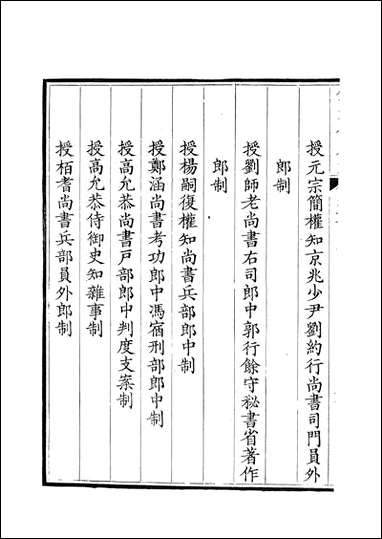 授元宗簡權知京兆少尹劉約行尚書司門員外
郎制
授劉師老尚書右司郎中郭行餘守秘書省著作
郎制
授楊嗣復權知尚書兵部郎中制
授鄭涵尚書考功郎中馮宿刑部郎中制
授高允恭尚書戶部郎中判度支案制
授高允恭侍御史知雜事制
授栢耆尚書兵部員外郎制